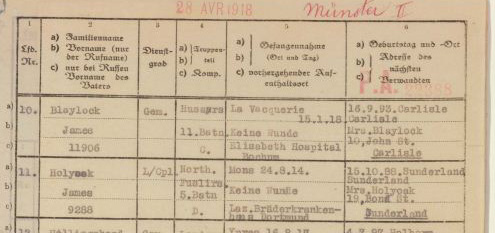 28 AVR 1918 Münster II
1 2 3 4 5 6
Lfd. Nr.
a) Familienname
b) Vorname (nur der Rufname)
c) nur bei Russen Vorname des Vaters
Dienst-
grad
a) Truppen-
b) teil
c) Komp.
a) Gefangennahme
b) (Ort und Tag)
c) vorhergehender Auf-
enthaltsort
a) Geburtstag und -Ort
b) Adresse des
c) nächsten
Verwandten
a) 10. Blaylock Gem. Hussars La Vacquerie 16.9.93.Carlisle
15.1.18 Carlisle
b) James 11.Batn. Keine Wunde Mrs.Blaylock
10,John St.
c) 11906 C. Elisabeth Hospital Carlisle
Bochum
a) 11. Holyoak L/Cpl. North. Mons 24.8.14. 15.10.88.Sunderland
Sunderland
Fusilrs.
b) James 5.Batn Keine Wunde Mrs.Holyoak
19,Bond St.
c) 9288 D. Laz.Brüderkranken-
haus Dortmund Sunderland